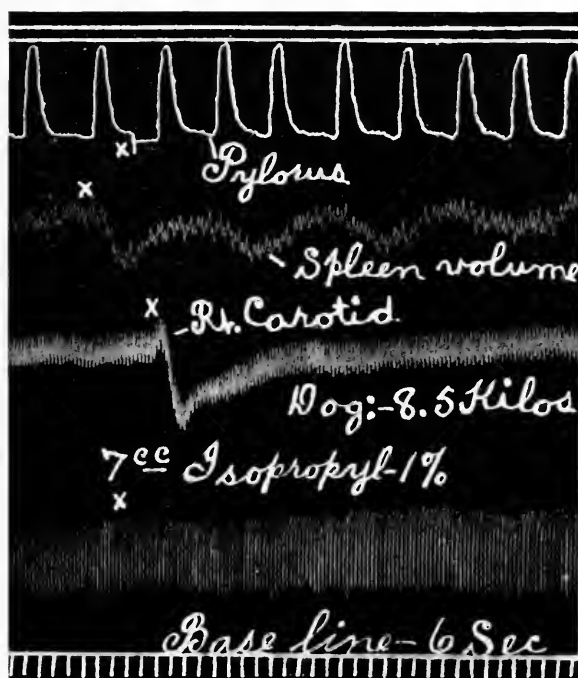 x
Pylorus
x
Spleen volume
x
Rt. Carotid
Dog:-8.5 Kilos
7cc Isopropyl-1%
x
Base line-6 Sec